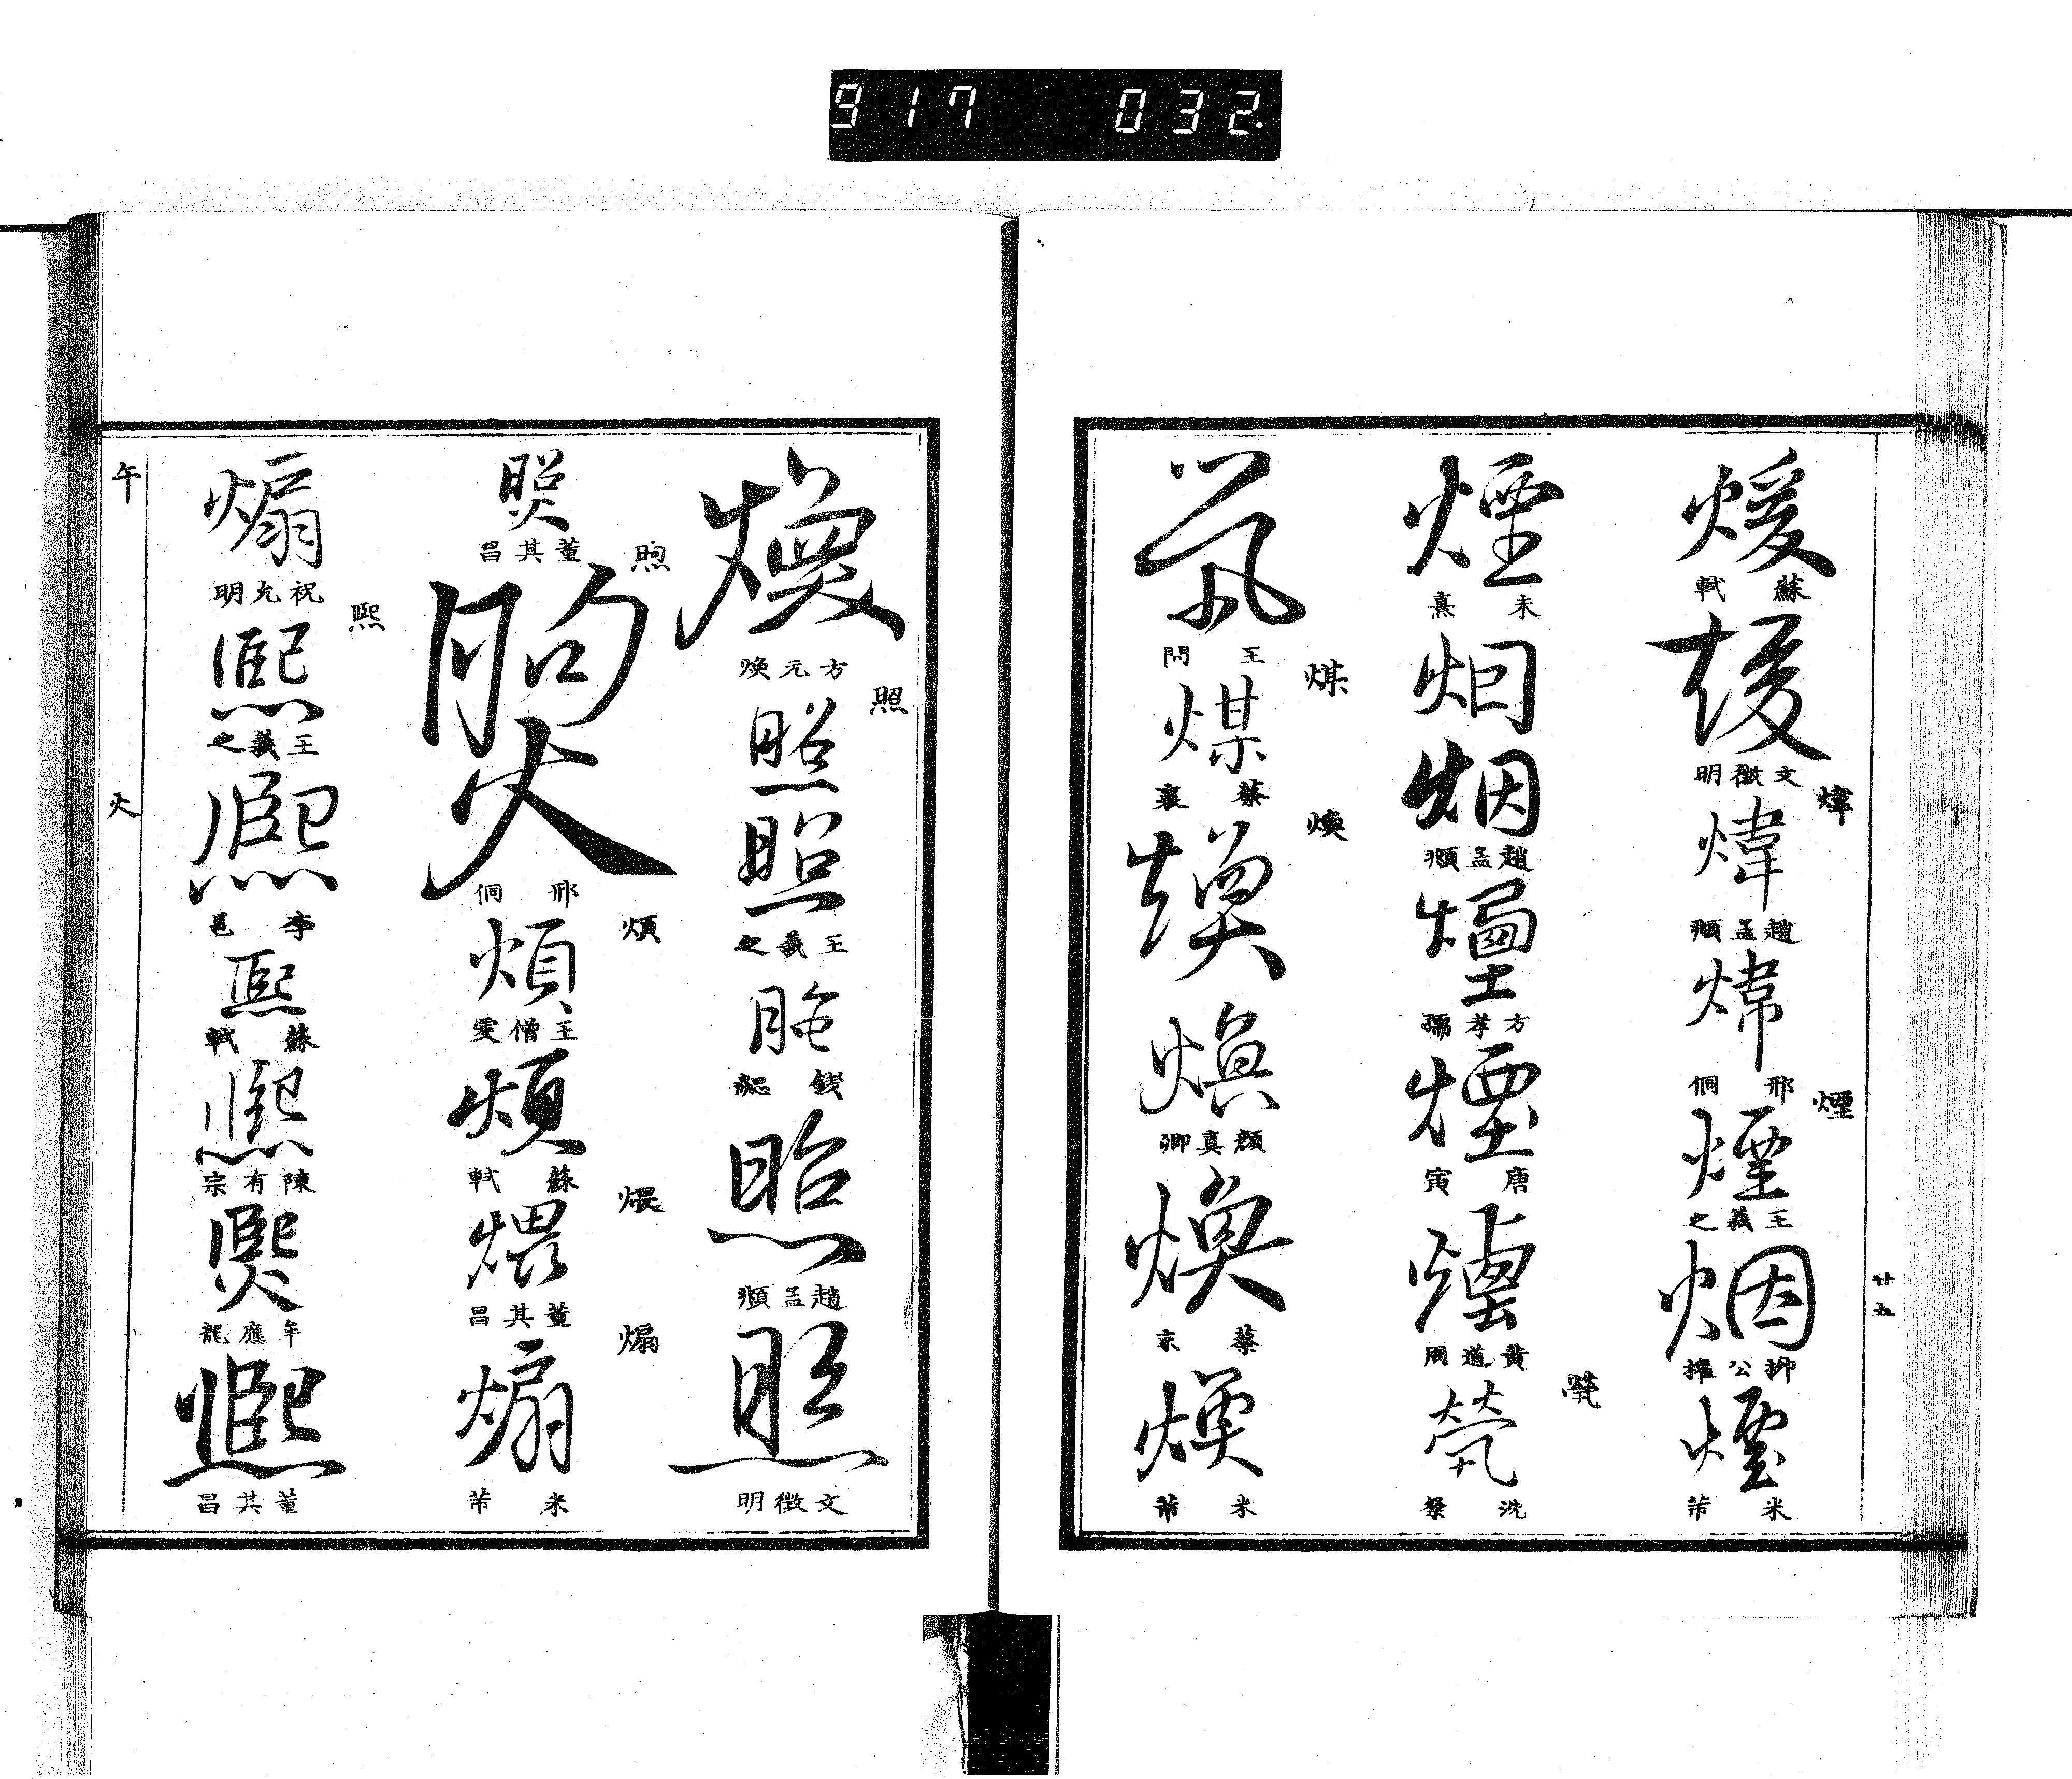 917 032
廿五
煖
蘇軾
煖
文徵明
煒
煒
趙孟頫
煒
邢侗
煙
煙
王羲之
烟
柳公權
煙
米芾
煙
朱熹
烟
烟
趙孟頫
煙
方孝孺
煙
唐寅
煙
黃道周
煢
煢
沈粲
煢
王問
煤
煤
蔡襄
煥
煥
煥
顏真卿
煥
蔡京
煥
米芾
煥
方元煥
照
照
照
王羲之
照
錢
照
趙孟頫
照
文徵明
照
董其昌
煦
煦
邢侗
煩
煩
王僧虔
煩
蘇軾
煨
煨
董其昌
煽
煽
米芾
煽
祝允明
熙
熙
王羲之
熙
李邕
熙
蘇軾
熙
陳有宗
熙
牟應龍
熙
董其昌
午
火